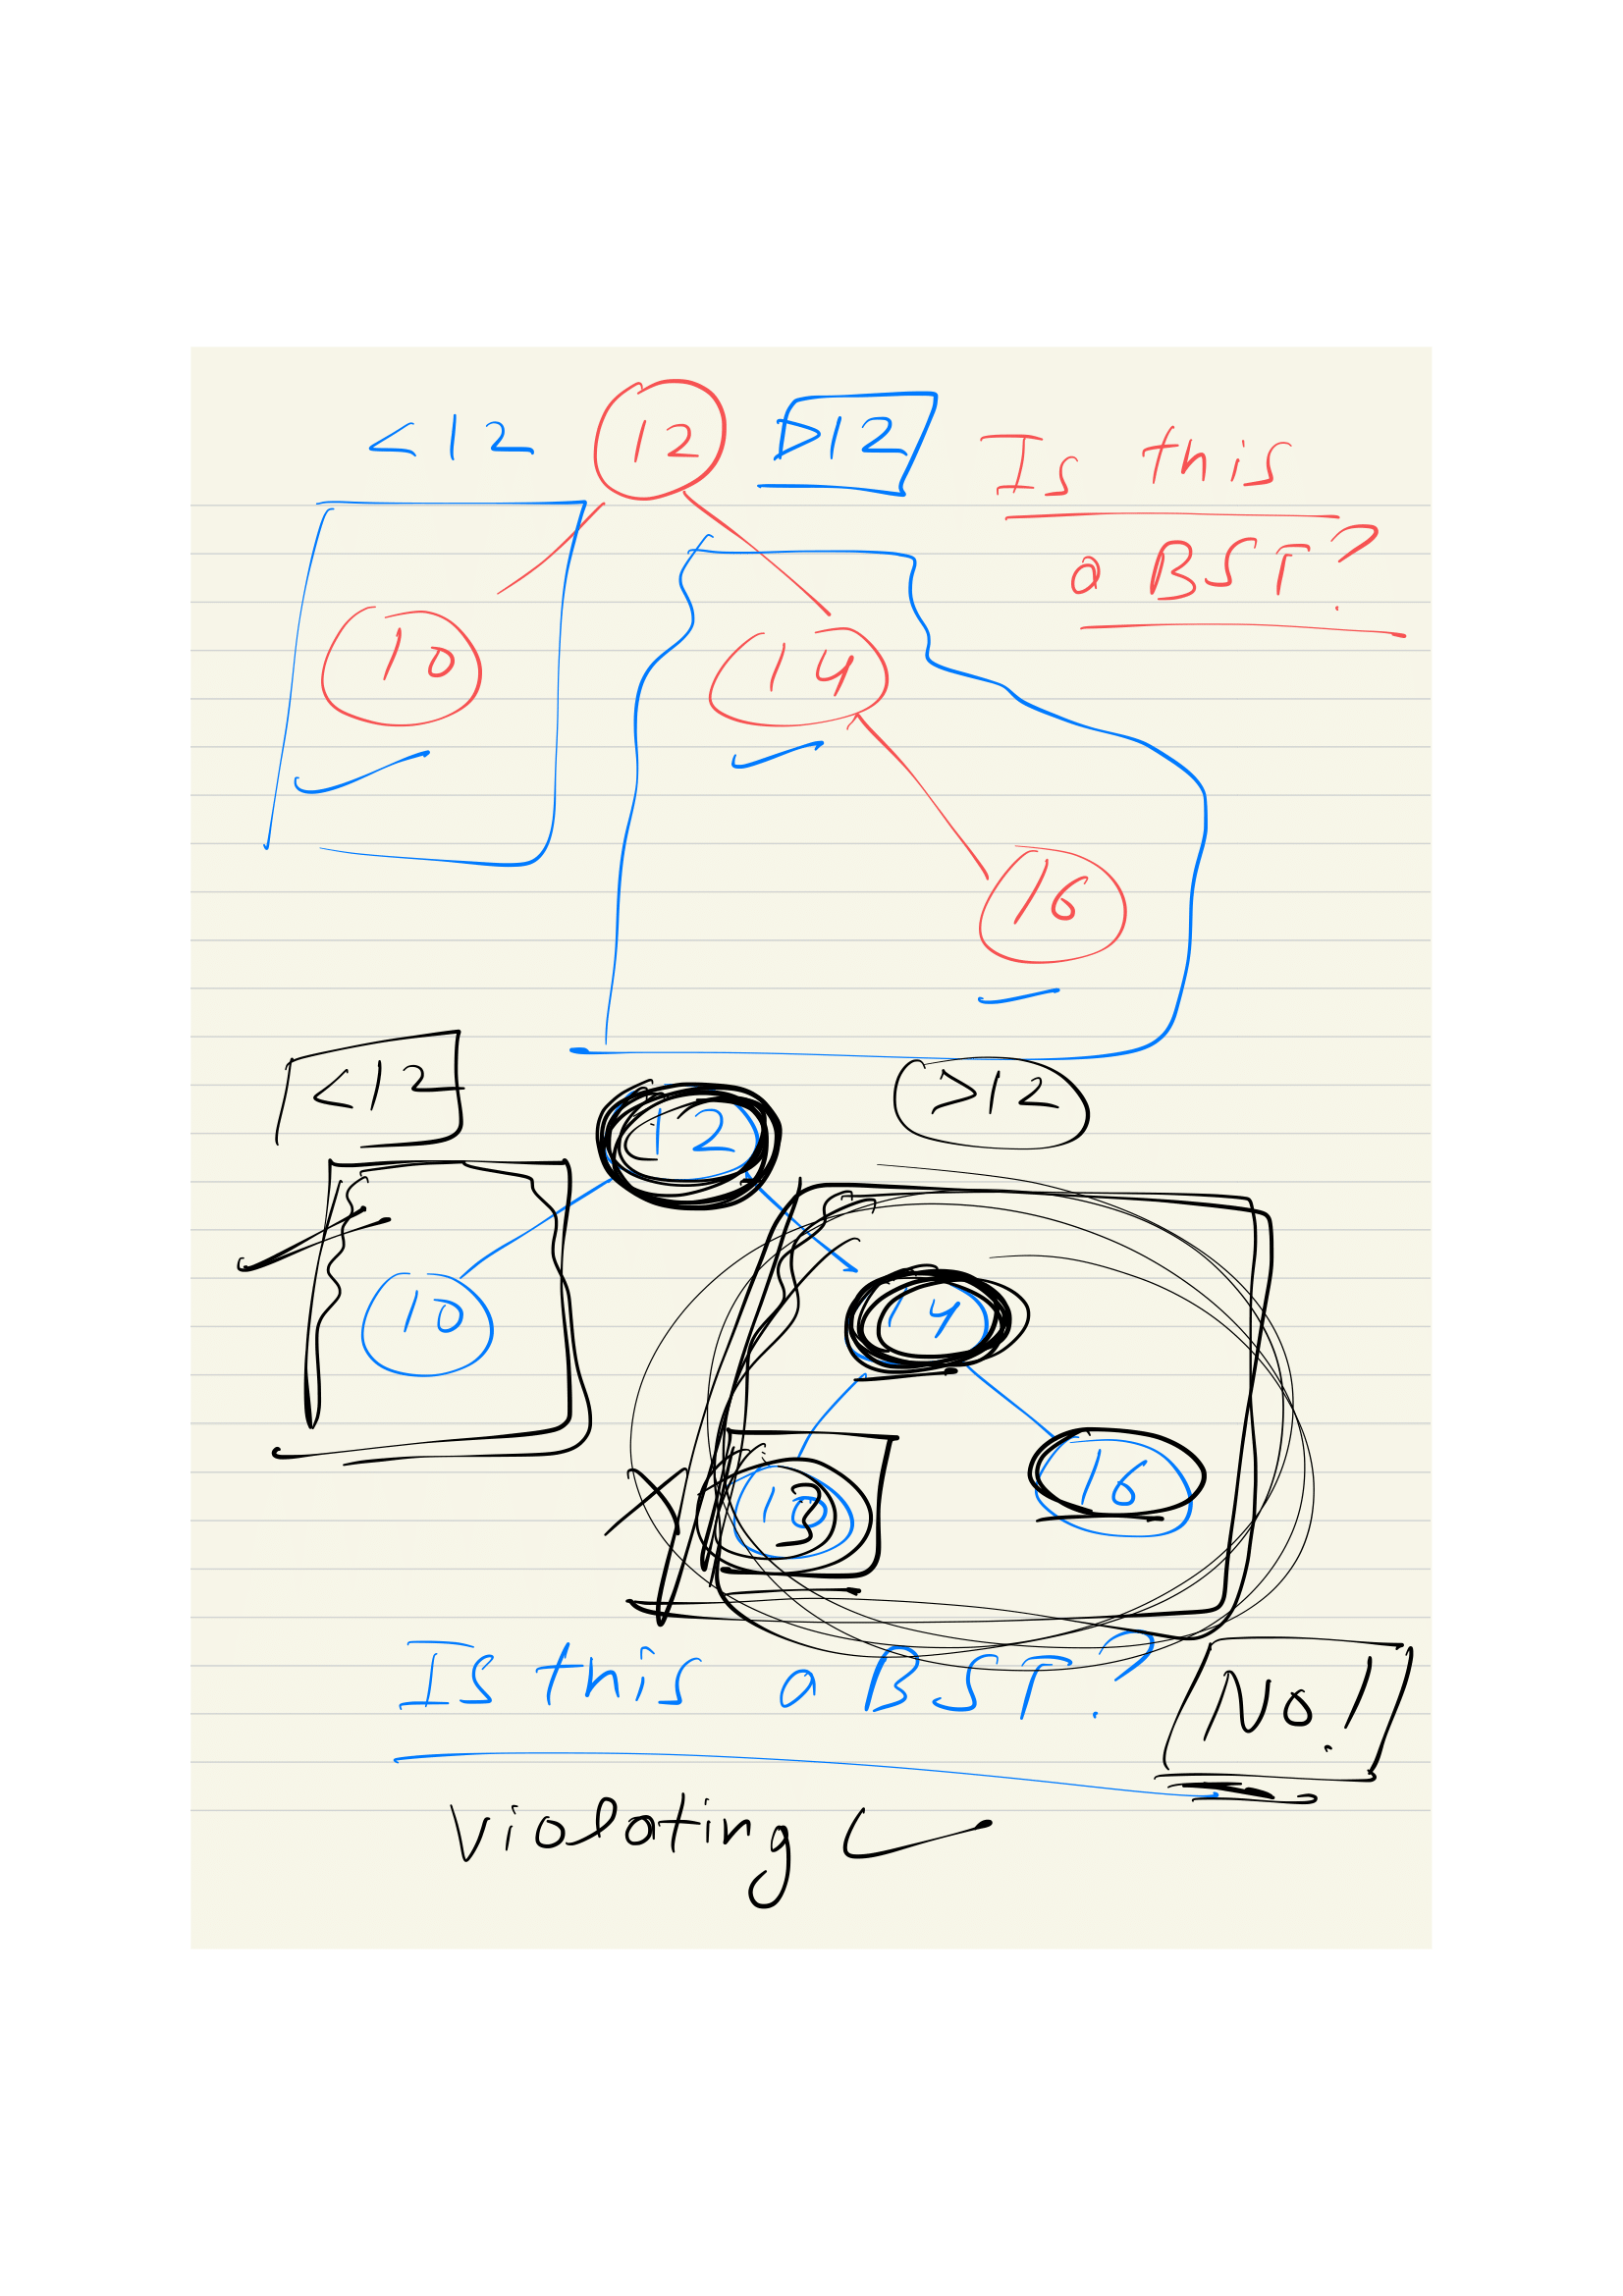 <12 12 >12 Is this
a BST?
10 14
16
<12 12 >12
10 14
16
Is this a BST?
No!
violating